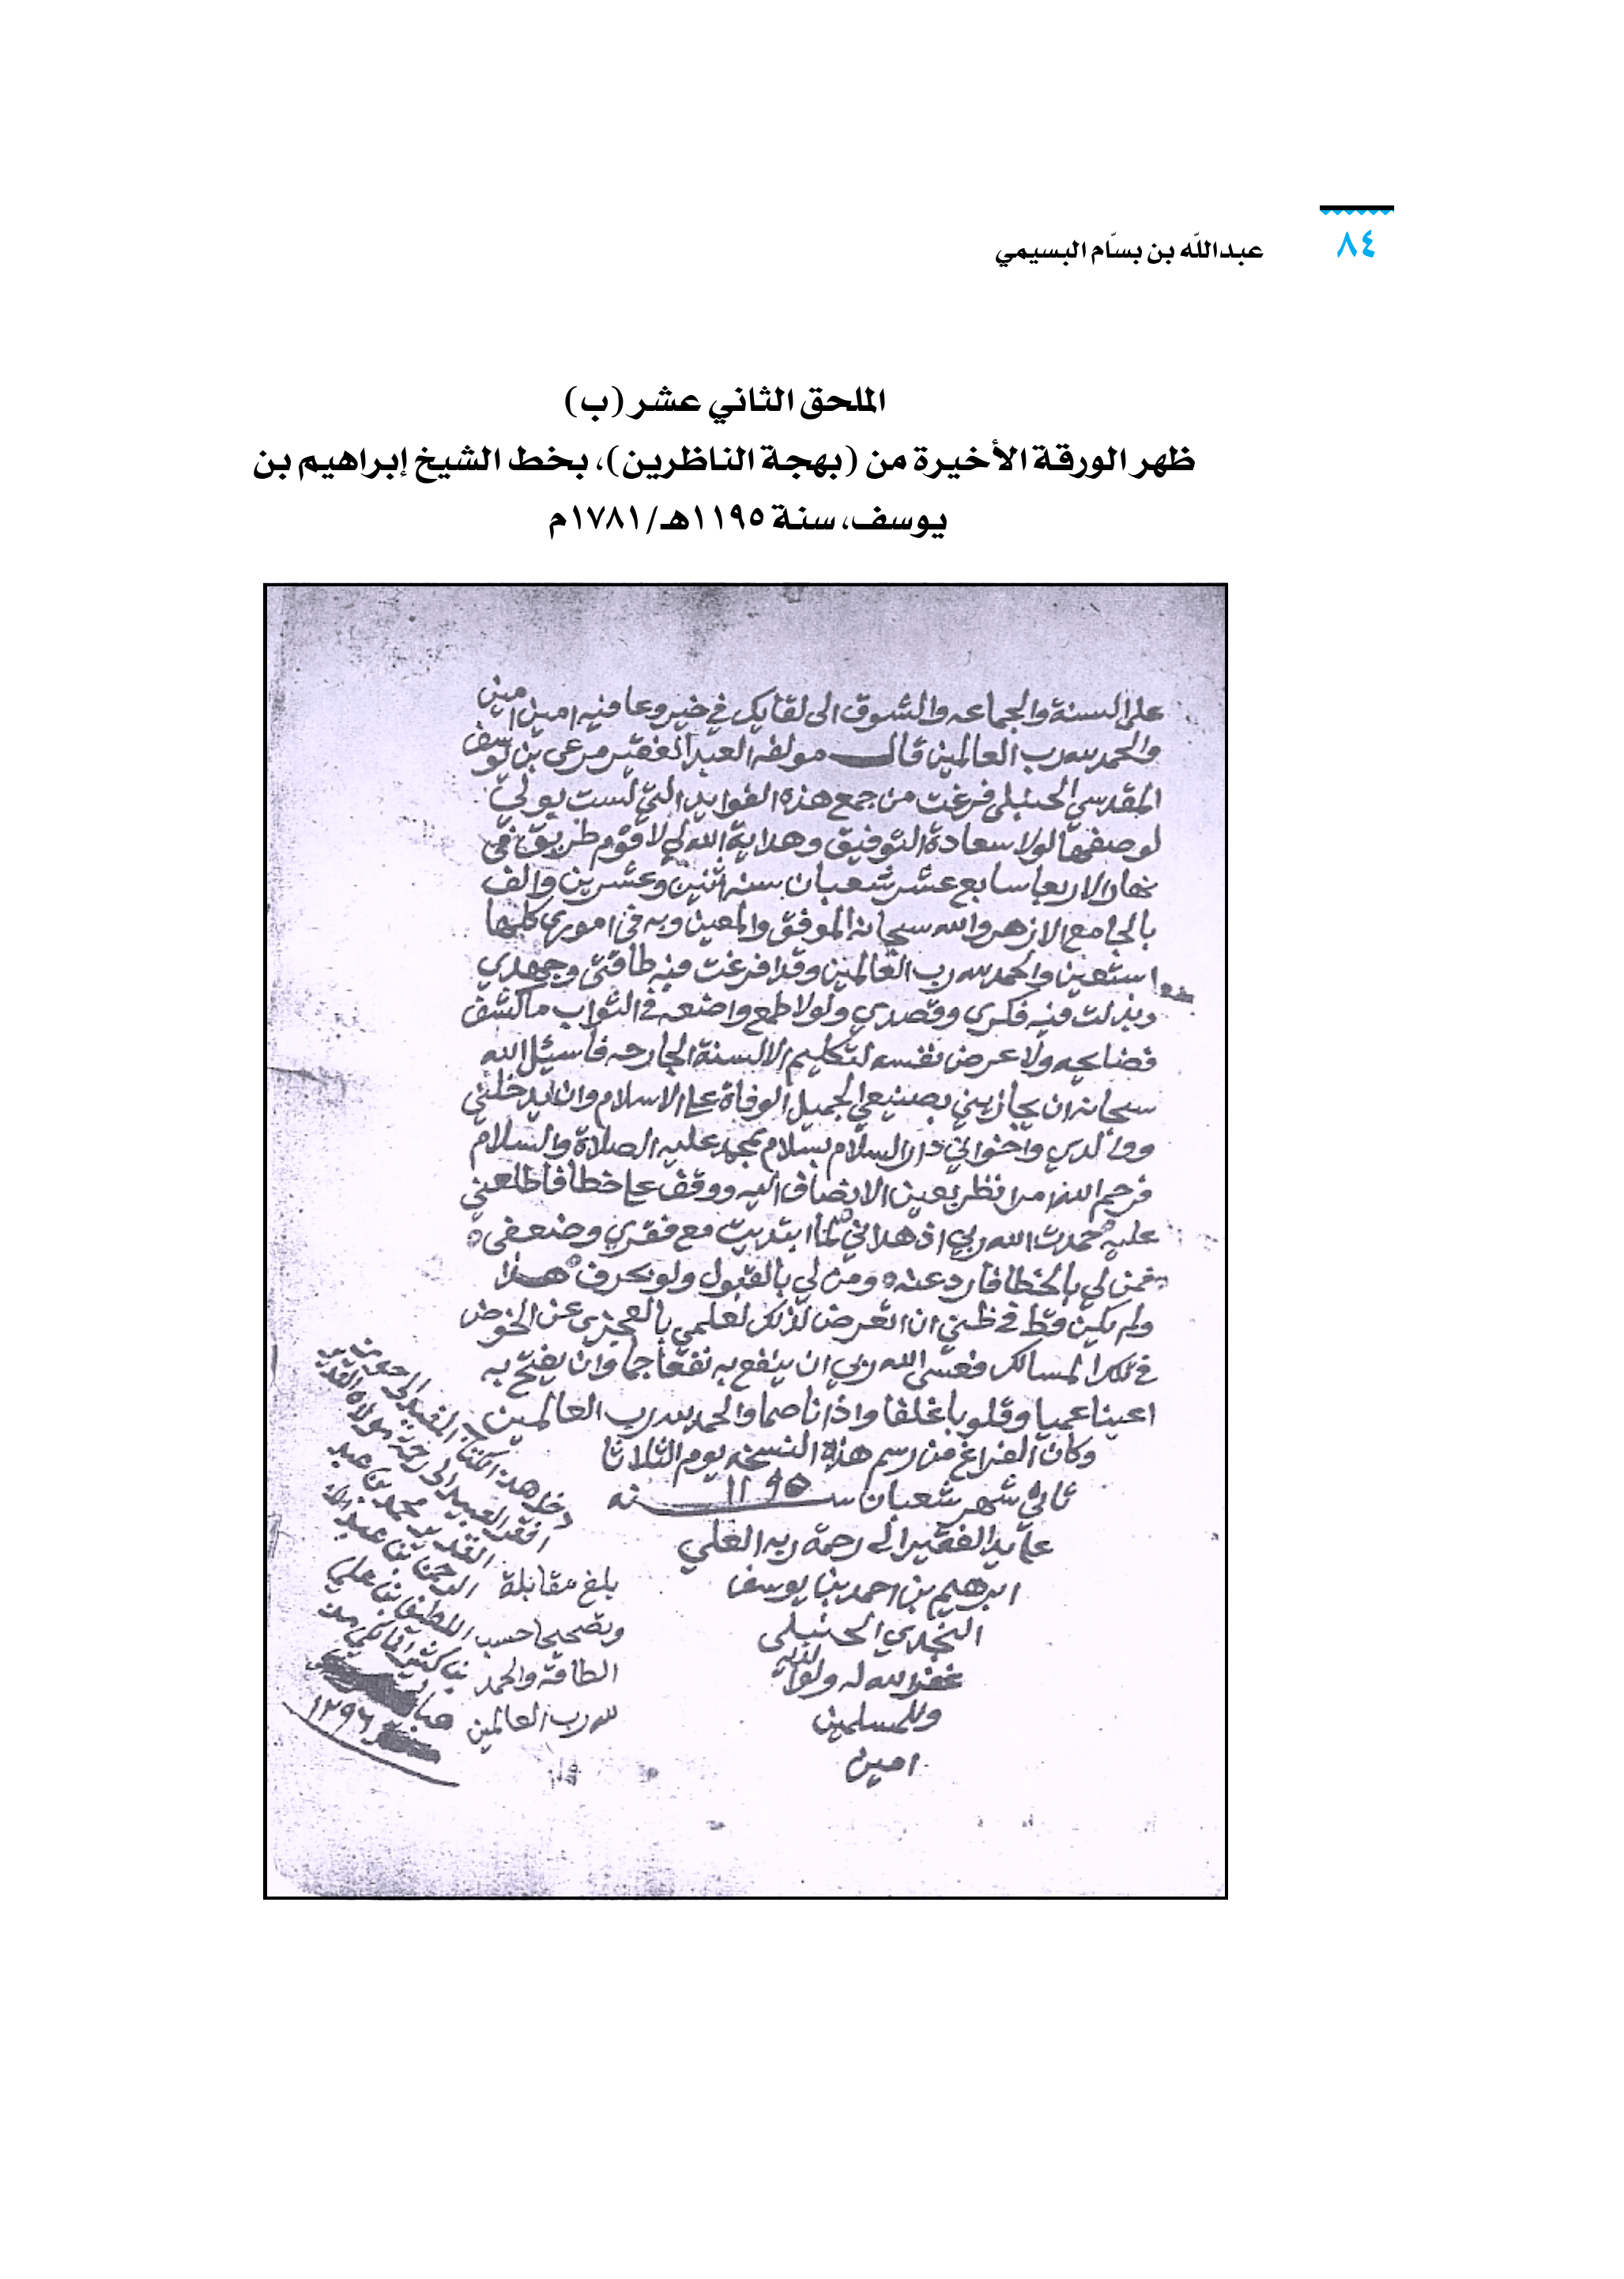 ٨٤
عبدالله بن بسّام البسيمي
الملحق الثاني عشر (ب)
ظهر الورقة الأخيرة من (بهجة الناظرين)، بخط الشيخ إبراهيم بن
يوسف، سنة ١١٩٥هـ/١٧٨١م
على السنة والجماعه والشوق الى لقايك في خير وعافيه امين امين
والحمد لله رب العالمين قال مولفه العبد الفقير مرعى بن يوسف
المقدسي الحنبلى فرغت من جمع هذه الفوايد التي لست
لوصفها لولا سعادة التوفيق وهداية الله لي لاقوم طريق في
نهار الاربعا سابع عشر شعبان سنه اثنين وعشرين والف
بالجامع الازهر والله سبحانه الموفق والمعين وبه في اموري كلها
استعين والحمد لله رب العالمين وقد افرغت فيه طاقتي وجهدي
وبذلت فيه فكري وقصدي ولولا طمع واضعه في الثواب ما كشف
فضايحه ولا عرض نفسه لتكليم الالسنة الجارحه فاسئل الله
سبحانه ان يجازيني بصنيعي الجميل الوفاة على الاسلام وان يدخلني
ووالدي واخواني دار السلام بسلام بمحمد عليه الصلاة والسلام
فرحم الله امرا نظر بعين الانصاف اليه ووقف على خطا فاطلعني
عليه حمدت الله ربي اذ هداني لما ابتديت مع فقري وضعفي
فمن لي بالخطا فارد عنه ومن لي بالقبول ولو بحرف هذا
ولم يكن قط في ظني ان اتعرض لذلك لعلمي بالعجز عن الخوض
في تلك المسالك فعسى الله ربي ان ينفع به نفعا جما وان يفتح به
اعينا عميا وقلوبا غلفا واذانا صما والحمد لله رب العالمين
وكان الفراغ من رسم هذه النسخه يوم الثلاثا
ثاني شهر شعبان سنه ١١٩٥
على يد الفقير الى رحمة ربه العلي
ابرهيم بن احمد بن يوسف
النجدي الحنبلى
غفر الله له ولوالديه
وللمسلمين
امين
بلغ مقابلة
وتصحيحا حسب
الطاقة والحمد
لله رب العالمين
هذا الكتاب
افقر العبيد الى رحمة مولاه
القدير محمد بن عبد
الرحمن بن
اللطيف بن علي
بن كثير المالكي
١٢٩٦